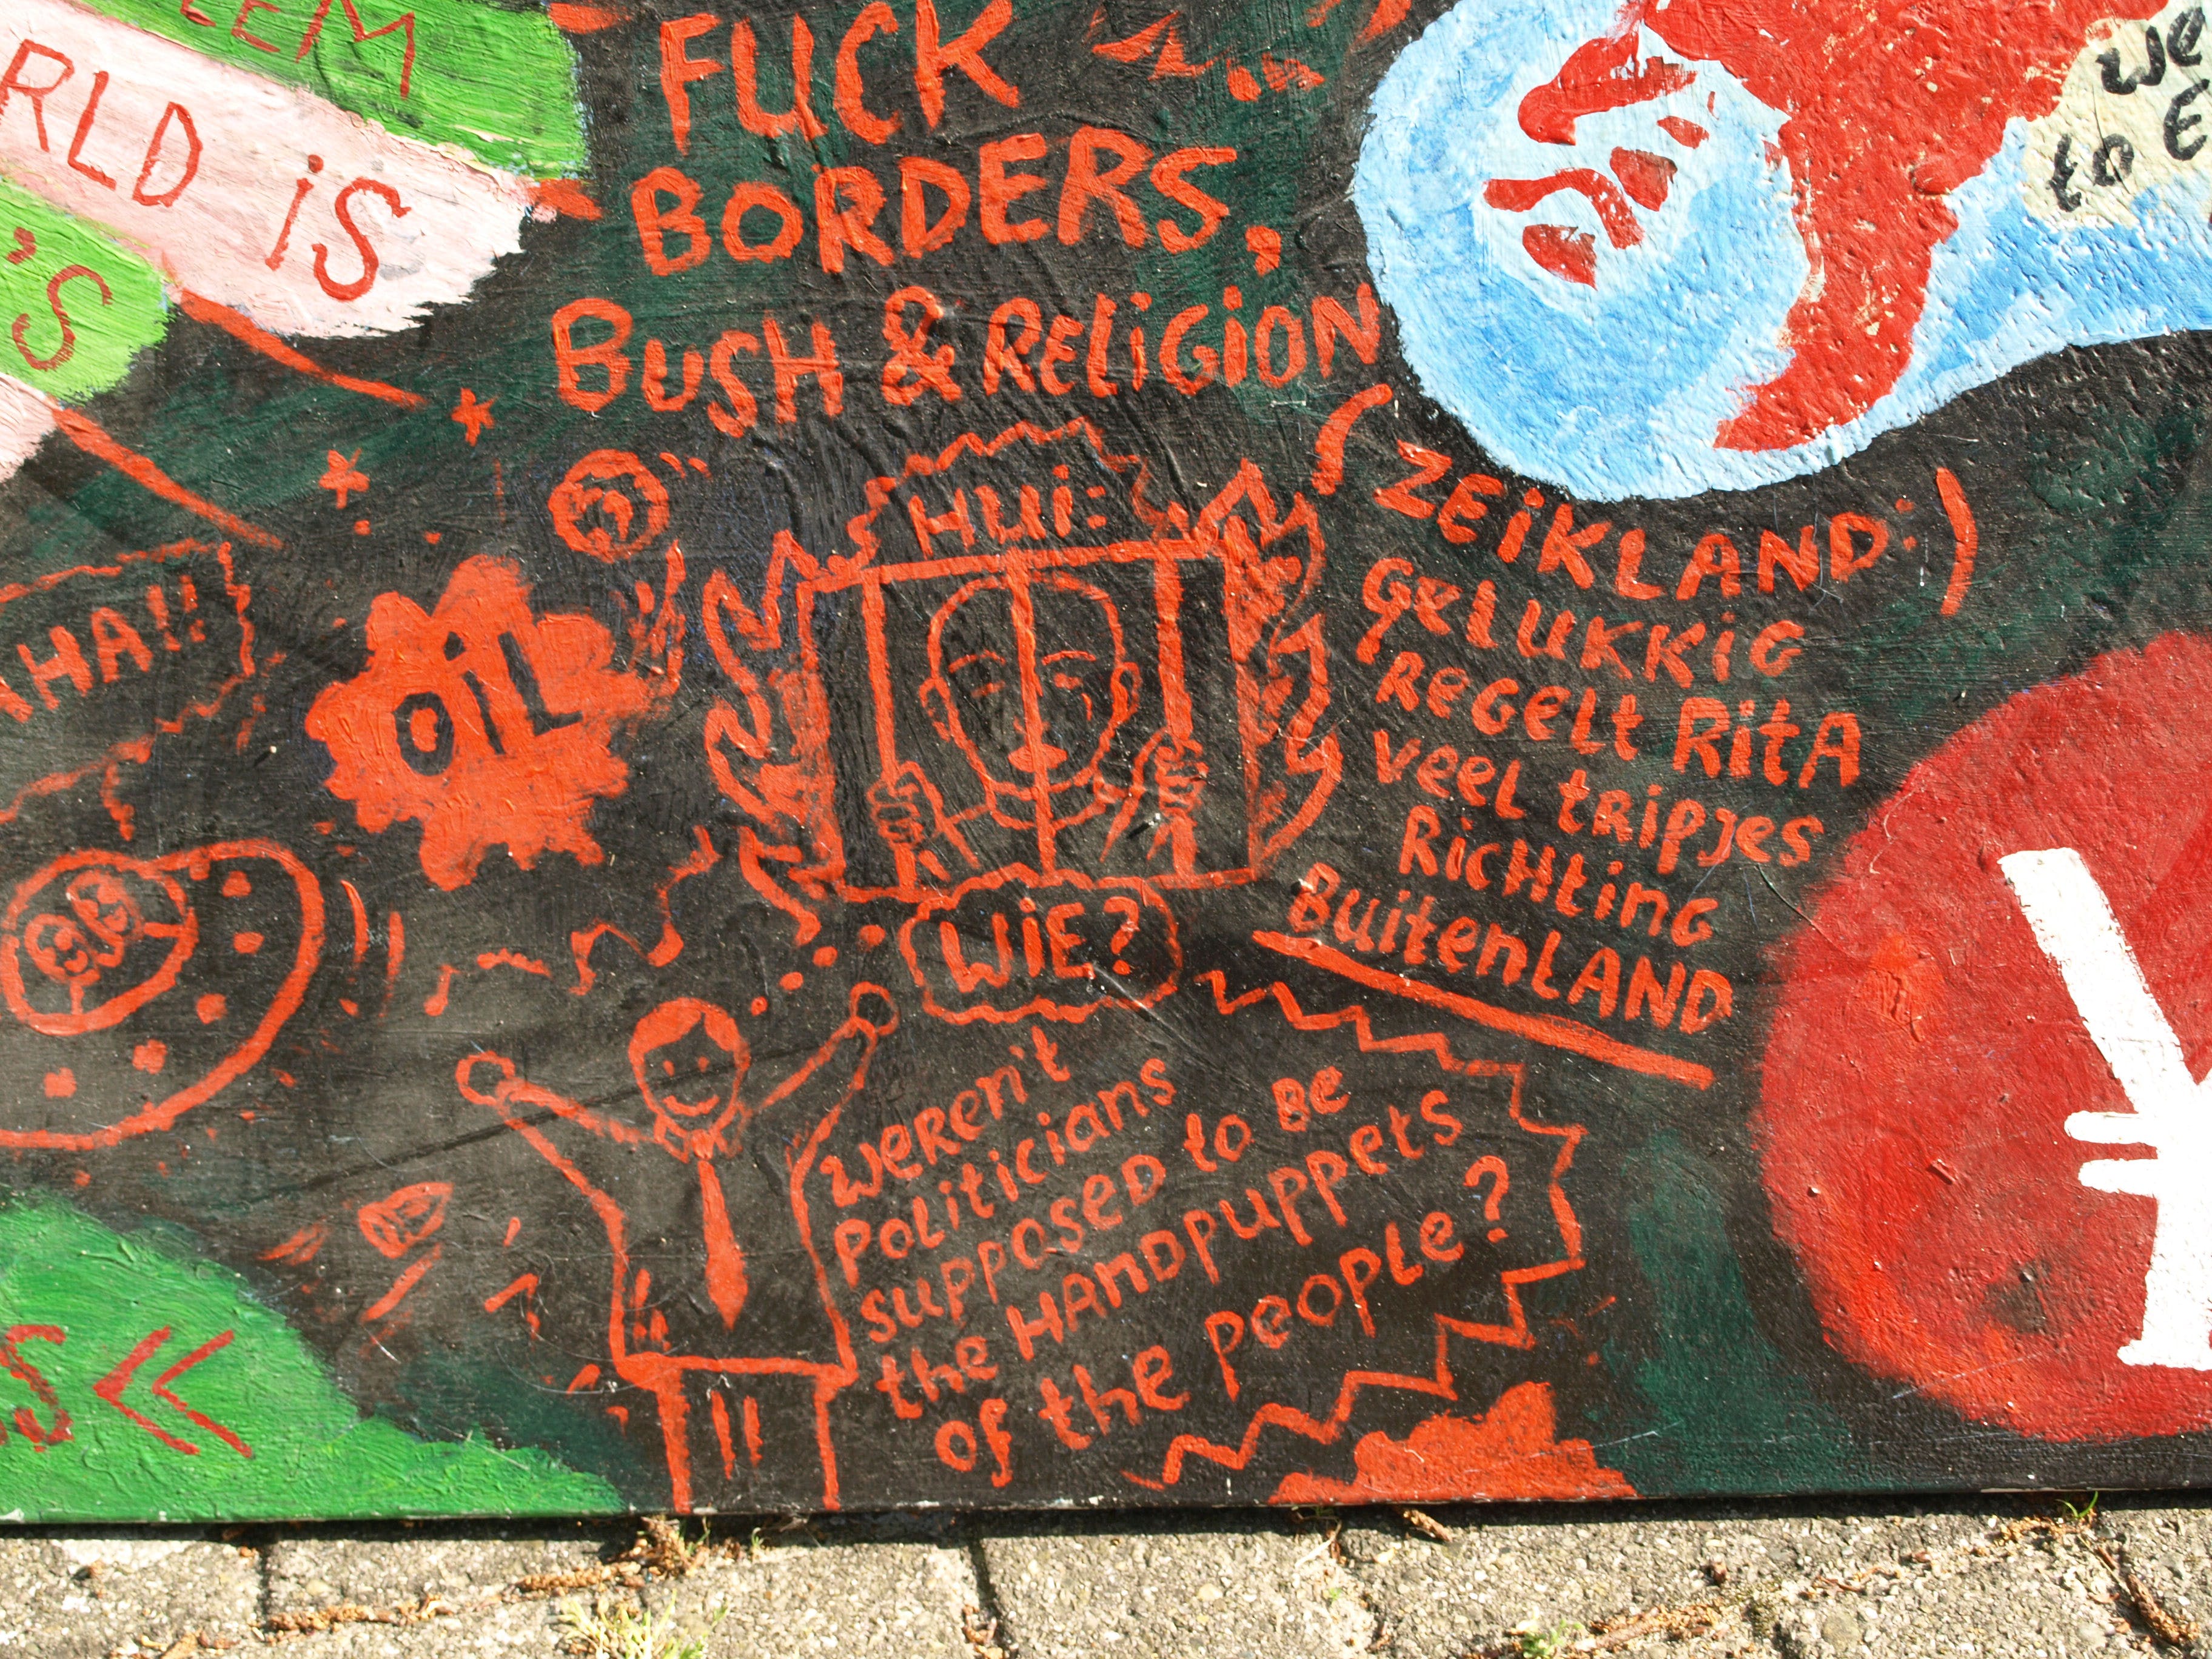 FUCK
BORDERS,
BUSH & RELIGION
RLD iS
'S
HUi:
(ZEiKLAND:)
GELUKKiG
REGELt RitA
VEEL tRipjes
RiCHtinG
BuitenLAND
HA!!
OiL
WiE?
weren't
politicians
supposed to be
the HAnDpuppets
of the people?
we
to E
S <<
¥